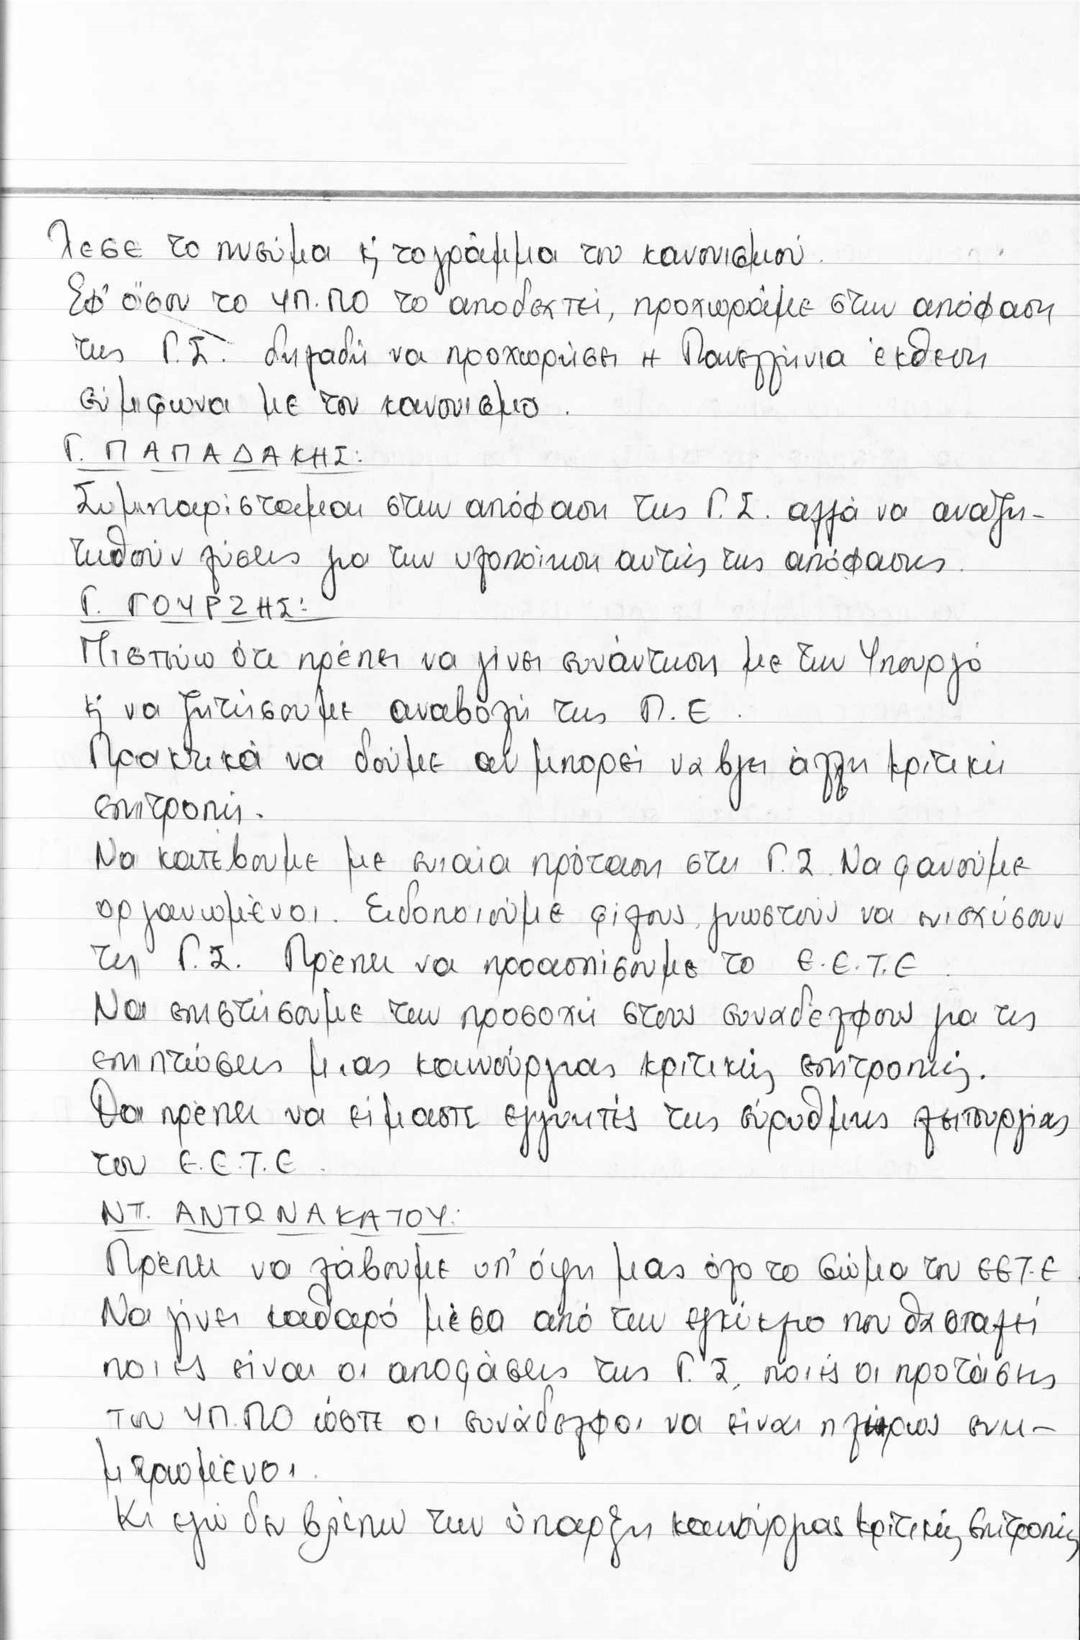 λεσε το πνεύμα κ' το γράμμα του κανονισμού.
Εφ' όσον το ΥΠ.ΠΟ το αποδεχτεί, προχωράμε στην απόφαση
της Γ.Σ. δηλαδή να προχωρήσει η Πανελλήνια έκθεση
σύμφωνα με τον κανονισμό.
Γ. ΠΑΠΑΔΑΚΗΣ:
Συμπαρίσταμαι στην απόφαση της Γ.Σ. αλλά να αναζη-
τηθούν λύσεις για την υλοποίηση αυτής της απόφασης.
Γ. ΓΟΥΡΖΗΣ:
Πιστεύω ότι πρέπει να γίνει συνάντηση με την Υπουργό
κ' να ζητήσουμε αναβολή της Π.Ε.
Πρακτικά να δούμε αν μπορεί να βγει άλλη κριτική
επιτροπή.
Να κατέβουμε με ενιαία πρόταση στη Γ.Σ. Να φανούμε
οργανωμένοι. Ειδοποιούμε φίλους, γνωστούς να ενισχύσουν
τη Γ.Σ. Πρέπει να προασπίσουμε το Ε.Ε.Τ.Ε
Να επιστήσουμε την προσοχή στους συναδέλφους για τις
επιπτώσεις μιας καινούργιας κριτικής επιτροπής.
Θα πρέπει να είμαστε εγγυητές της εύρυθμης λειτουργίας
του Ε.Ε.Τ.Ε.
ΝΤ. ΑΝΤΩΝΑΚΑΤΟΥ:
Πρέπει να λάβουμε υπ' όψη μας όλο το σώμα του ΕΕΤ.Ε.
Να γίνει καθαρό μέσα από την εγκύκλιο που θα σταλεί
ποιές είναι οι αποφάσεις της Γ.Σ, ποιές οι προτάσεις
του ΥΠ.ΠΟ ώστε οι συνάδελφοι να είναι πλήρως ενη-
μερωμένοι.
Κι εγώ δεν βλέπω την ύπαρξη καινούργιας κριτικής επιτροπής